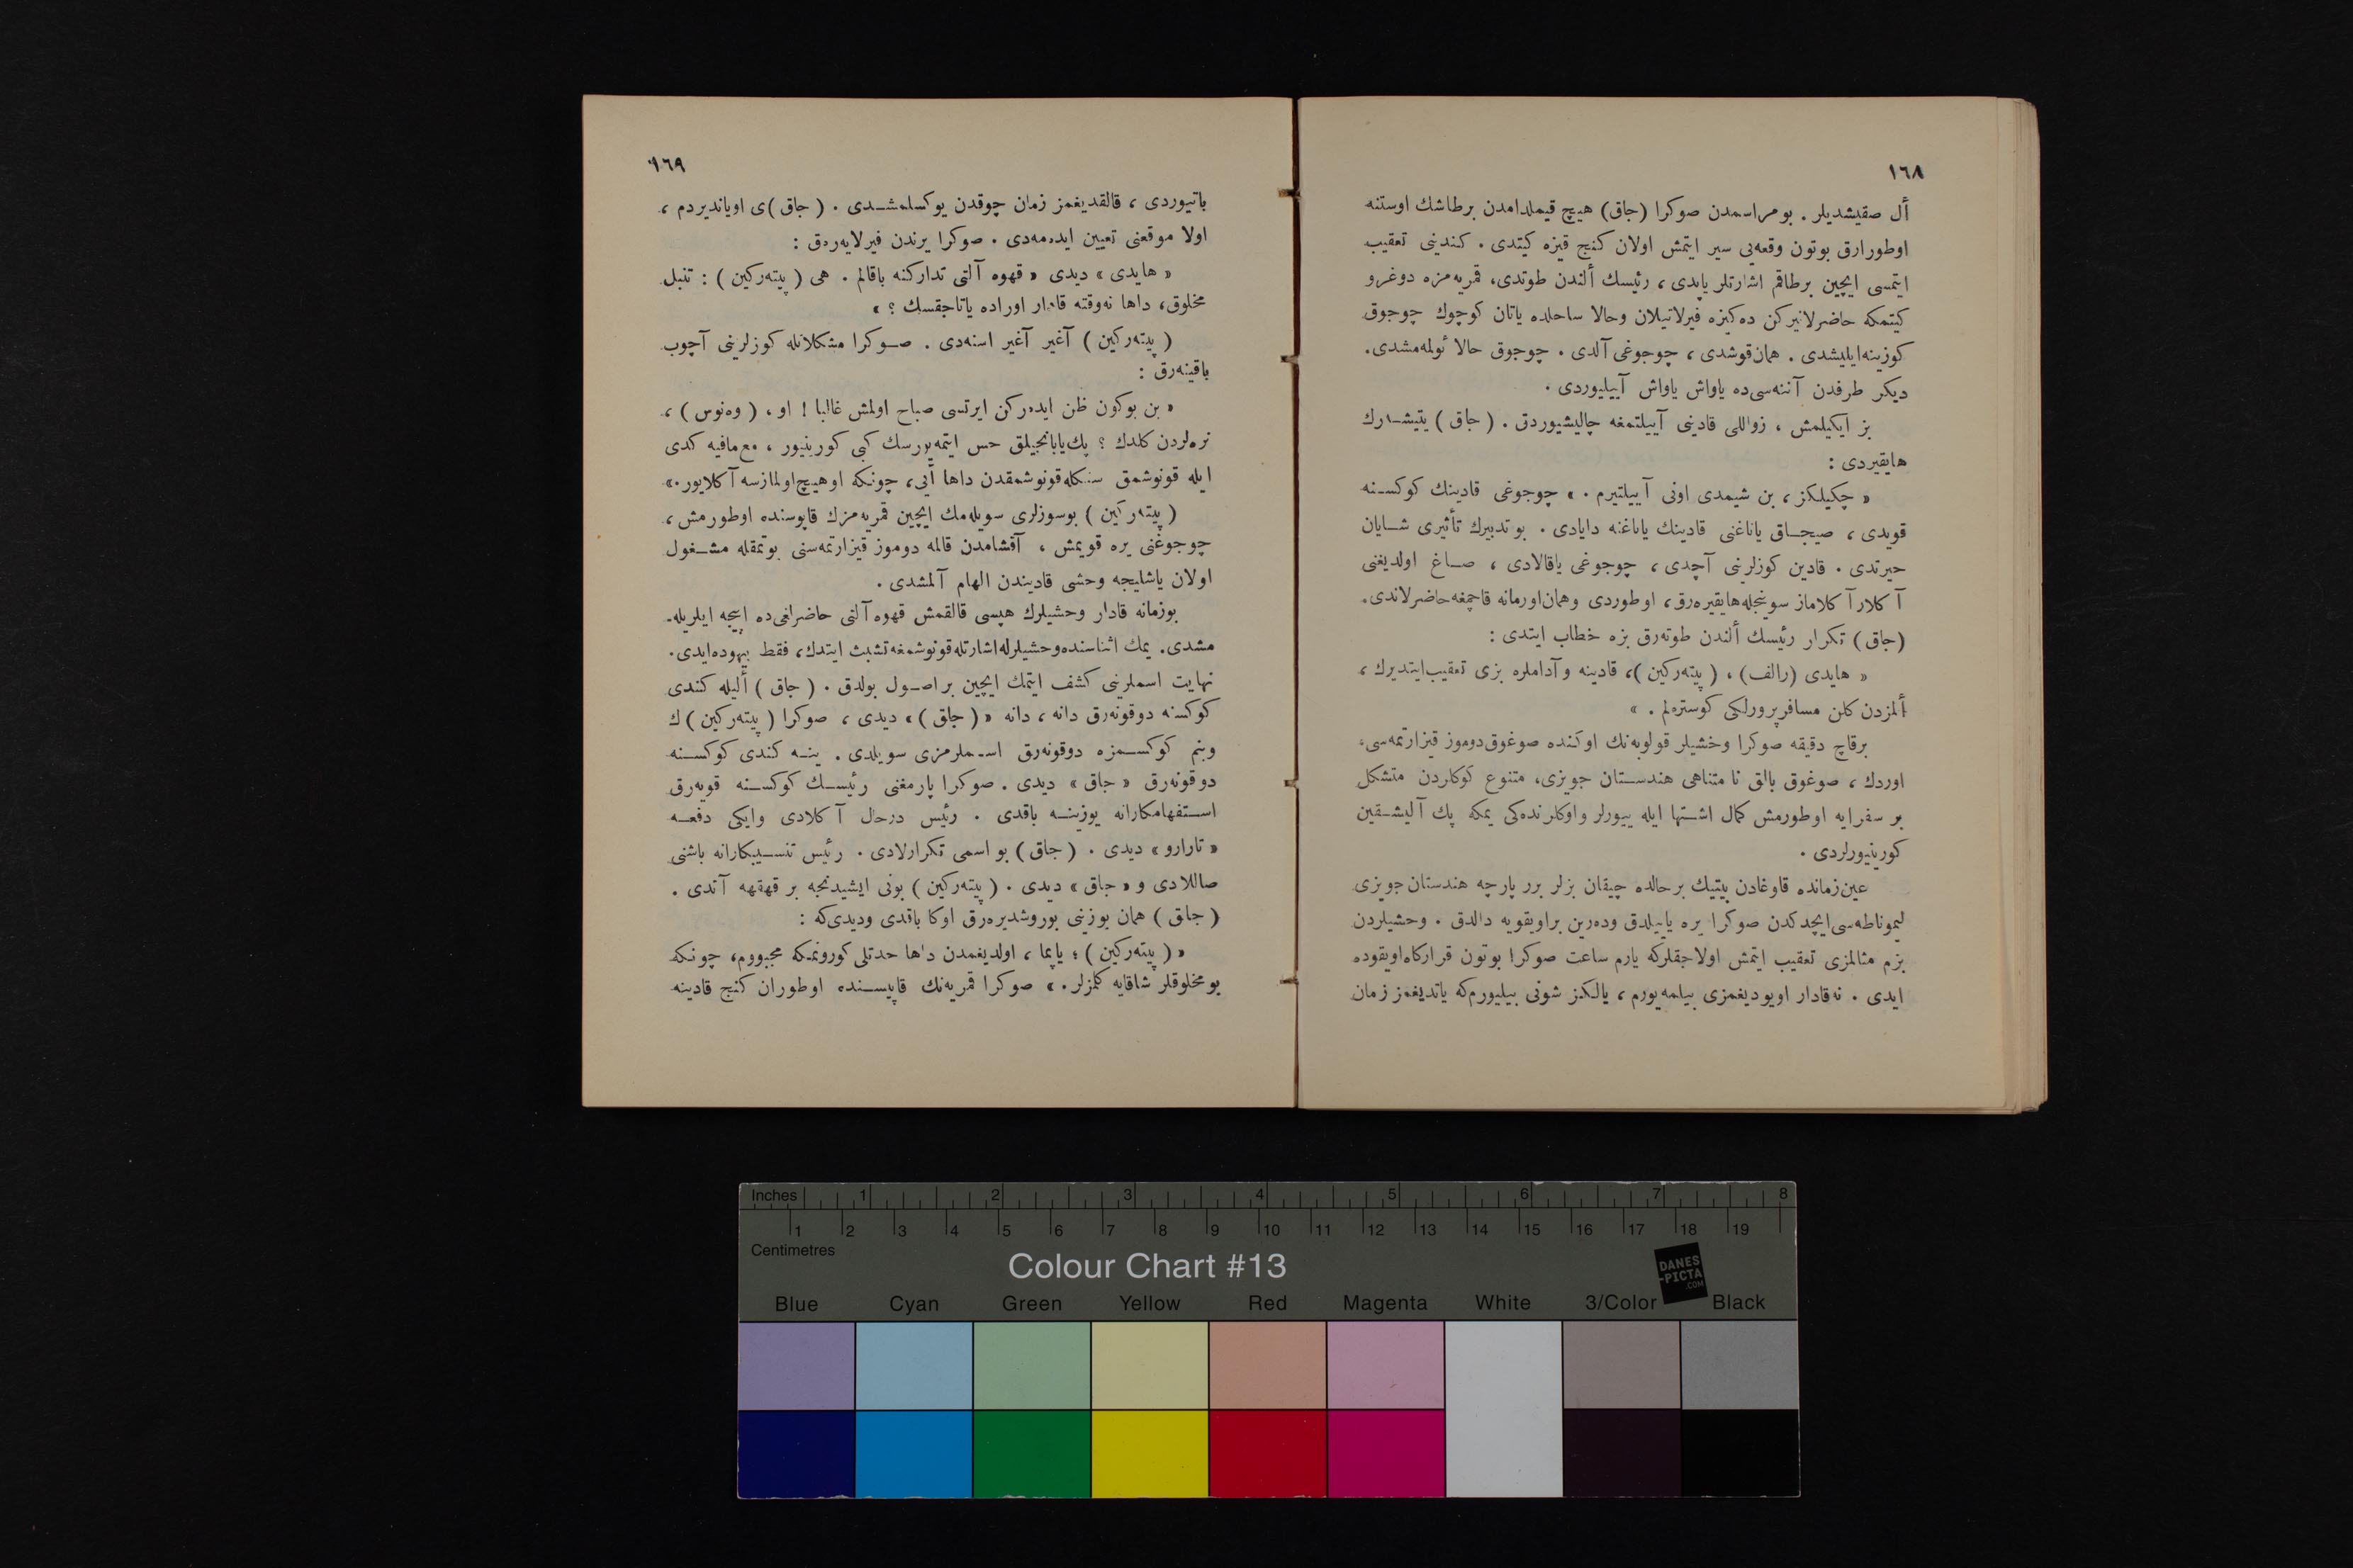 ١٦٨
أل صقيشديلر . بومراسمدن صوكرا (جاق) هيچ قيملدامدن برطاشك اوستنه
اوطورارق بوتون وقعه‌يى سير ايتمش اولان كنج قيزه كيتدى . كندينى تعقيب
ايتمسى ايچين برطاقم اشارتلر ياپدى ، رئيسك ألندن طوتدى، قمريه‌مزه دوغرو
كيتمكه حاضرلانيركن ده‌كيزه فيرلاتيلان وحالا ساحلده ياتان كوچوك چوجوق
كوزينه‌ايليشدى . همان‌قوشدى ، چوجوغى آلدى . چوجوق حالا ئولمه‌مشدى.
ديكر طرفدن آننه‌سى‌ده ياواش ياواش آييليوردى .
بز ايكيلمش ، زواللى قادينى آييلتمغه چاليشيوردق . (جاق) يتيشه‌رك
هايقيردى :
« چكيلكز ، بن شيمدى اونى آييلتيرم . » چوجوغى قادينك كوكسنه
قويدى ، صيجاق ياناغنى قادينك ياناغنه دايادى . بوتدبيرك تأثيرى شايان
حيرتدى . قادين كوزلرينى آچدى ، چوجوغى ياقالادى ، صاغ اولديغنى
آكلار آكلاماز سوينجله‌هايقيره‌رق، اوطوردى وهمان‌اورمانه قاچمغه‌حاضرلاندى.
(جاق) تكرار رئيسك ألندن طوته‌رق بزه خطاب ايتدى :
« هايدى (رالف) ، (پيته‌ركين)، قادينه وآداملره بزى تعقيب‌ايتديرك ،
ألمزدن كلن مسافرپرورلكى كوستره‌لم . »
برقاچ دقيقه صوكرا وخشيلر قولوبه‌نك اوكنده صوغوق‌دوموز قيزارتمه‌سى،
اوردك ، صوغوق بالق نا متناهى هندستان جويزى، متنوع كوكلردن متشكل
بر سفرايه اوطورمش كمال اشتها ايله ييورلر واوكلرنده‌كى يمكه پك آليشقين
كورينيورلردى .
عين‌زمانده قاوغادن بيتيك برحالده چيقان بزلر برر پارچه هندستان‌جويزى
ليموناطه‌سى‌ايچدكدن صوكرا يره ياييلدق ودەرين براويقويه دالدق . وحشيلردن
بزم مثالمزى تعقيب ايتمش اولاجقلركه يارم ساعت صوكرا بوتون قراركاه‌اويقوده
ايدى . نه‌قادار اويوديغمزى بيلمه‌يورم ، يالكز شونى بيليورم‌كه ياتديغمز زمان
١٦٩
باتيوردى ، قالقديغمز زمان چوقدن يوكسلمشدى . (جاق)ى اوياندیردم ،
اولا موقعنى تعيين ايده‌مه‌دى . صوكرا يرندن فيرلايه‌رق :
« هايدى » ديدى « قهوه آلتى تداركنه باقالم . هى (پيته‌ركين) : تنبل
مخلوق، داها نه‌وقته قادار اوراده ياتاجقسك ؟ »
(پيته‌ركين) آغير آغير اسنه‌دى . صوكرا مشكلاتله كوزلرينى آچوب
باقينه‌رق :
« بن بوكون ظن ايده‌ركن ايرتسى صباح اولمش غالبا ! او ، (وه‌نوس) ،
نره‌لردن كلدك ؟ پك‌يابانجيلق حس ايتمه‌يورسك كبى كورينيور ، مع‌مافيه كدى
ايله قونوشمق سنكله‌قونوشمقدن داها أيى، چونكه اوهيچ‌اولمازسه آكلايور.»
(پيته‌ركين) بوسوزلرى سويله‌مك ايچين قمريه‌مزك قاپوسنده اوطورمش،
چوجوغنى يره قويمش ، آقشامدن قالمه دوموز قيزارتمه‌سنى يوتمقله مشغول
اولان ياشليجه وحشى قاديندن الهام آلمشدى .
بوزمانه قادار وحشيلرك هپسى قالقمش قهوه آلتى حاضرلغى‌ده اپيجه ايلريله-
مشدى. يمك اثناسنده‌وحشيلرله‌اشارتله‌قونوشمغه‌تشبث ايتدك، فقط بيهوده‌ايدى.
نهايت اسملرينى كشف ايتمك ايچين بر اصول بولدق . (جاق) أليله كندى
كوكسنه دوقونه‌رق دانه ، دانه « (جاق) » ديدى ، صوكرا (پيته‌ركين) ك
وبنم كوكسمزه دوقونه‌رق اسملرمزى سويلدى . ينه كندى كوكسنه
دوقونه‌رق « جاق » ديدى . صوكرا پارمغنى رئيسك كوكسنه قويه‌رق
استفهامكارانه يوزينه باقدى . رئيس درحال آكلادى وايكى دفعه
« تارارو » ديدى . (جاق) بو اسمى تكرارلادى . رئيس تنسيبكارانه باشنى
صاللادى و « جاق » ديدى . (پيته‌ركين) بونى ايشيدنجه بر قهقهه آتدى .
(جاق) همان يوزينى بوروشديره‌رق اوكا باقدى وديدى‌كه :
« (پيته‌ركين) ؛ ياپما ، اولديغمدن داها حدتلى كورونمكه مجبورم، چونكه
بومخلوقلر شاقايه كلمزلر. » صوكرا قمريه‌نك قاپيسنده اوطوران كنج قادينه
Inches 1 2 3 4 5 6 7 8
1 2 3 4 5 6 7 8 9 10 11 12 13 14 15 16 17 18 19
Centimetres
Colour Chart #13
DANES
-PICTA
.COM
Blue Cyan Green Yellow Red Magenta White 3/Color Black